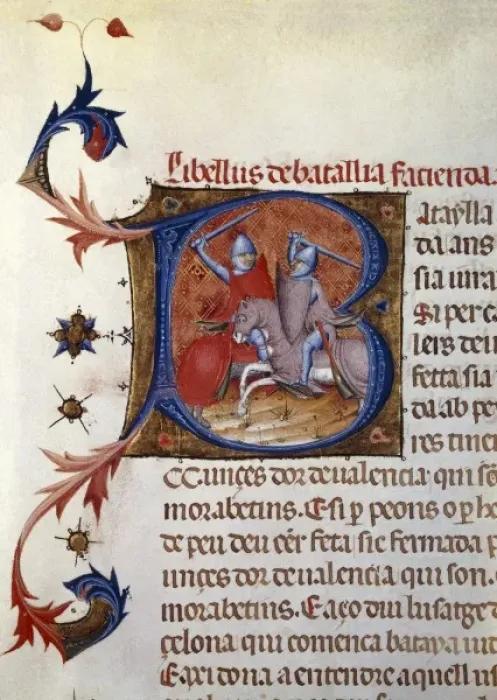 Libellus de batallia facienda.
Bataylla
da ans
sia iura
Si per ca
lers deu
fetta sia
da ab pe
res tinc
CC. unçes dor de ualencia qui so
morabetins. E si p peons o p ho
de peu deu eēr feta sic fermada p
unçes dor de ualencia qui son.
morabetins. E aço diu lusatge
çelona qui comença bataya iu
E axi dona a entendre aquell u